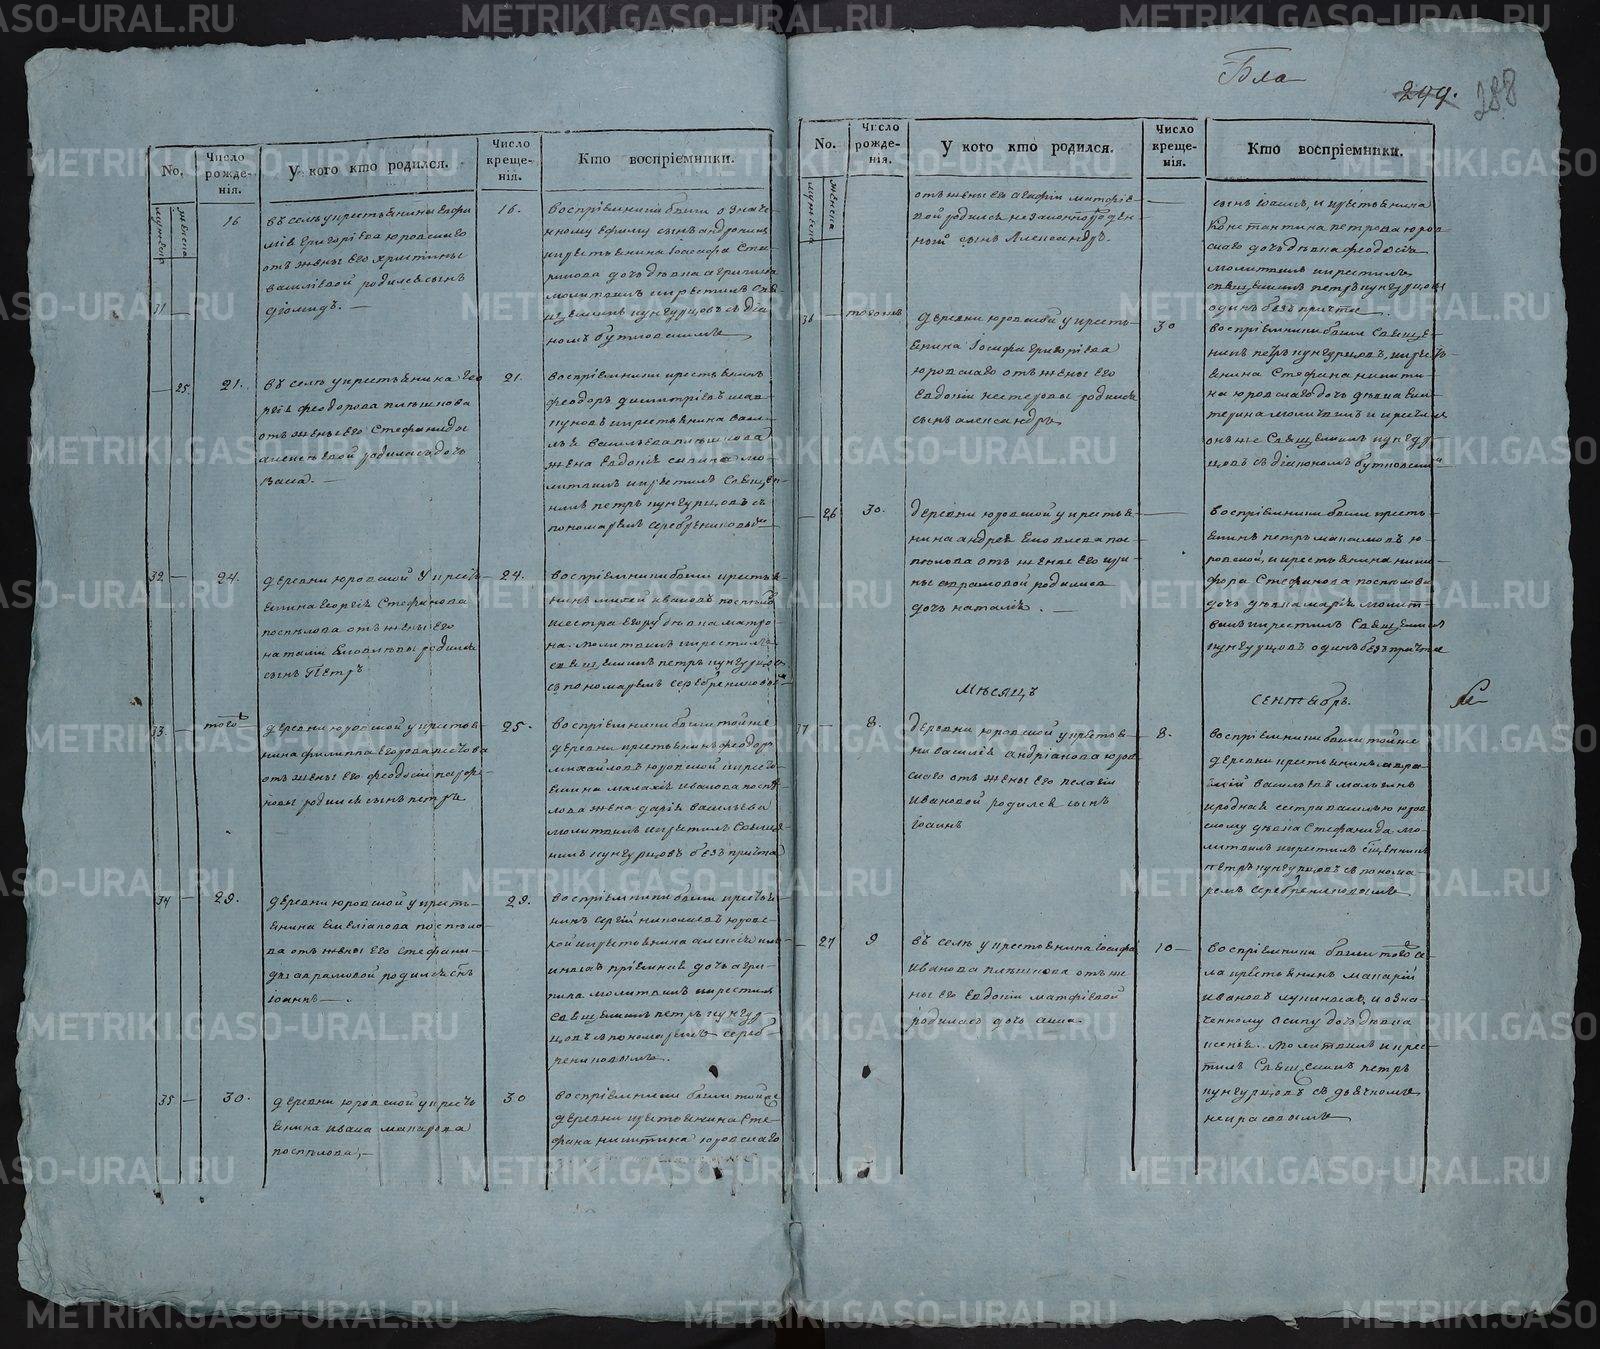 Бла
249.
288
No.
Число рожде-нія.
У кого кто родился.
Число креще-нія.
Кто воспріемники.
мужеска
женска
31
16
въ селѣ у крестьянина Ефи
мія Григоріева юровскаго
отъ жены его христины
васильевой родился сынъ
діомидъ. —
16.
воспріемники были означе
нному Ефиму сынъ андроникъ
и крестьянина Іоасафа Сте
дочь дѣвка агрипина
молитвилъ и крестилъ свя
щенникъ кунгурцовъ съ діа
кономъ бутковскимъ
— 25
21.
въ селѣ у крестьянина Гео
ргія феодорова плѣшкова
отъ жены его Стефаниды
алексѣевой родилась дочь
васа. —
21.
воспріемники крестьянинъ
феодоръ димитріевъ
и крестьянина васи
лья васильева плѣшкова
жена Евдокія савина мо
литвилъ и крестилъ Священ
никъ петръ кунгурцовъ съ
пономаремъ серебренниковымъ
32 —
24.
деревни юровской у кресть
янина Георгія Стефанова
поспѣлова отъ жены его
наталіи родился
сынъ Петръ
24.
воспріемники были крестья
нинъ михей ивановъ поспѣловъ
сестра егору дѣвка матро
на. молитвилъ и крестилъ
священникъ петръ кунгурцовъ
съ пономаремъ серебренниковымъ
33. —
тогожъ
деревни юровской у крестья
нина филиппа
отъ жены его феодосіи
родился сынъ петръ
25.
воспріемники были тойже
деревни крестьянинъ феодоръ
михайловъ юровской и кресть
янина малахія иванова поспѣ
лова жена дарія васильева
молитвилъ и крестилъ Священ
никъ кунгурцовъ безъ причта
34 —
29.
деревни юровской у кресть
янина Емеліанова поспѣло
ва отъ жены его Стефани
ды авраамовой родился сынъ
іоаннъ — .
29.
воспріемники были крестья
нинъ сергій николаевъ юровс
кой и крестьянина алексія
пріемная дочь агри
пина молитвилъ и крестилъ
Священникъ петръ кунгур
цовъ съ пономаремъ сереб
ренниковымъ.
35 —
30.
деревни юровской у кресть
янина ивана макарова
поспѣлова, —
30
воспріемники были тойже
деревни крестьянина Сте
фана никитина юровскаго
No.
Число рожде-нія.
У кого кто родился.
Число креще-нія.
Кто воспріемники.
мужеска
женска
отъ жены его агафіи матфіе
вой родился незаконнорожден
ный сынъ Александръ.
—
сынъ и крестьянина
Константина петрова юров
скаго дочь дѣвка феодосія
молитвилъ и крестилъ
священникъ петръ кунгурцовъ
одинъ безъ причта
36 —
тогожъ
деревни юровской у кресть
янина Іосифа григоріева
юровскаго отъ жены его
Евдокіи нестеровы родился
сынъ александръ
30
воспріемники были Священ
никъ петръ кунгурцовъ, и кресть
янина Стефана никити
на юровскаго дочь дѣвка Ека
терина молитвилъ и крестилъ
онъ же Священникъ кунгур
цовъ съ діакономъ бутковскимъ
— 26
30.
деревни юровской у крестья
нина андрея Емо
отъ жены его ири
ны авраамовой родилась
дочь наталія. —
—
воспріемники были кресть
янинъ петръ максимовъ ю
ровской, и крестьянина ники
фора Стефанова поспѣлова
дочь дѣвка марія молит
вилъ и крестилъ Священникъ
кунгурцовъ одинъ безъ причта
Мѣсяцъ
Сентябрь.
37 —
8.
деревни юровской у крестья
на василія андріанова юров
скаго отъ жены его пелагіи
ивановой родился сынъ
Іоаннъ
8.
воспріемники были тойже
деревни крестьянинъ
васильевъ
и родная сестра василью юров
скому дѣвка Стефанида мо
литвилъ и крестилъ священникъ
петръ кунгурцовъ съ понома
ремъ серебренниковымъ
— 27
9
въ селѣ у крестьянина Іосифа
иванова плѣшкова отъ же
ны его Евдокіи матфіевой
родилась дочь анна.
10 —
воспріемники были того се
ла крестьянинъ макарій
ивановъ и озна
ченному осипу дочь дѣвка
ксенія. молитвилъ и крес
тилъ Священникъ петръ
кунгурцовъ съ дьячкомъ
некрасовымъ